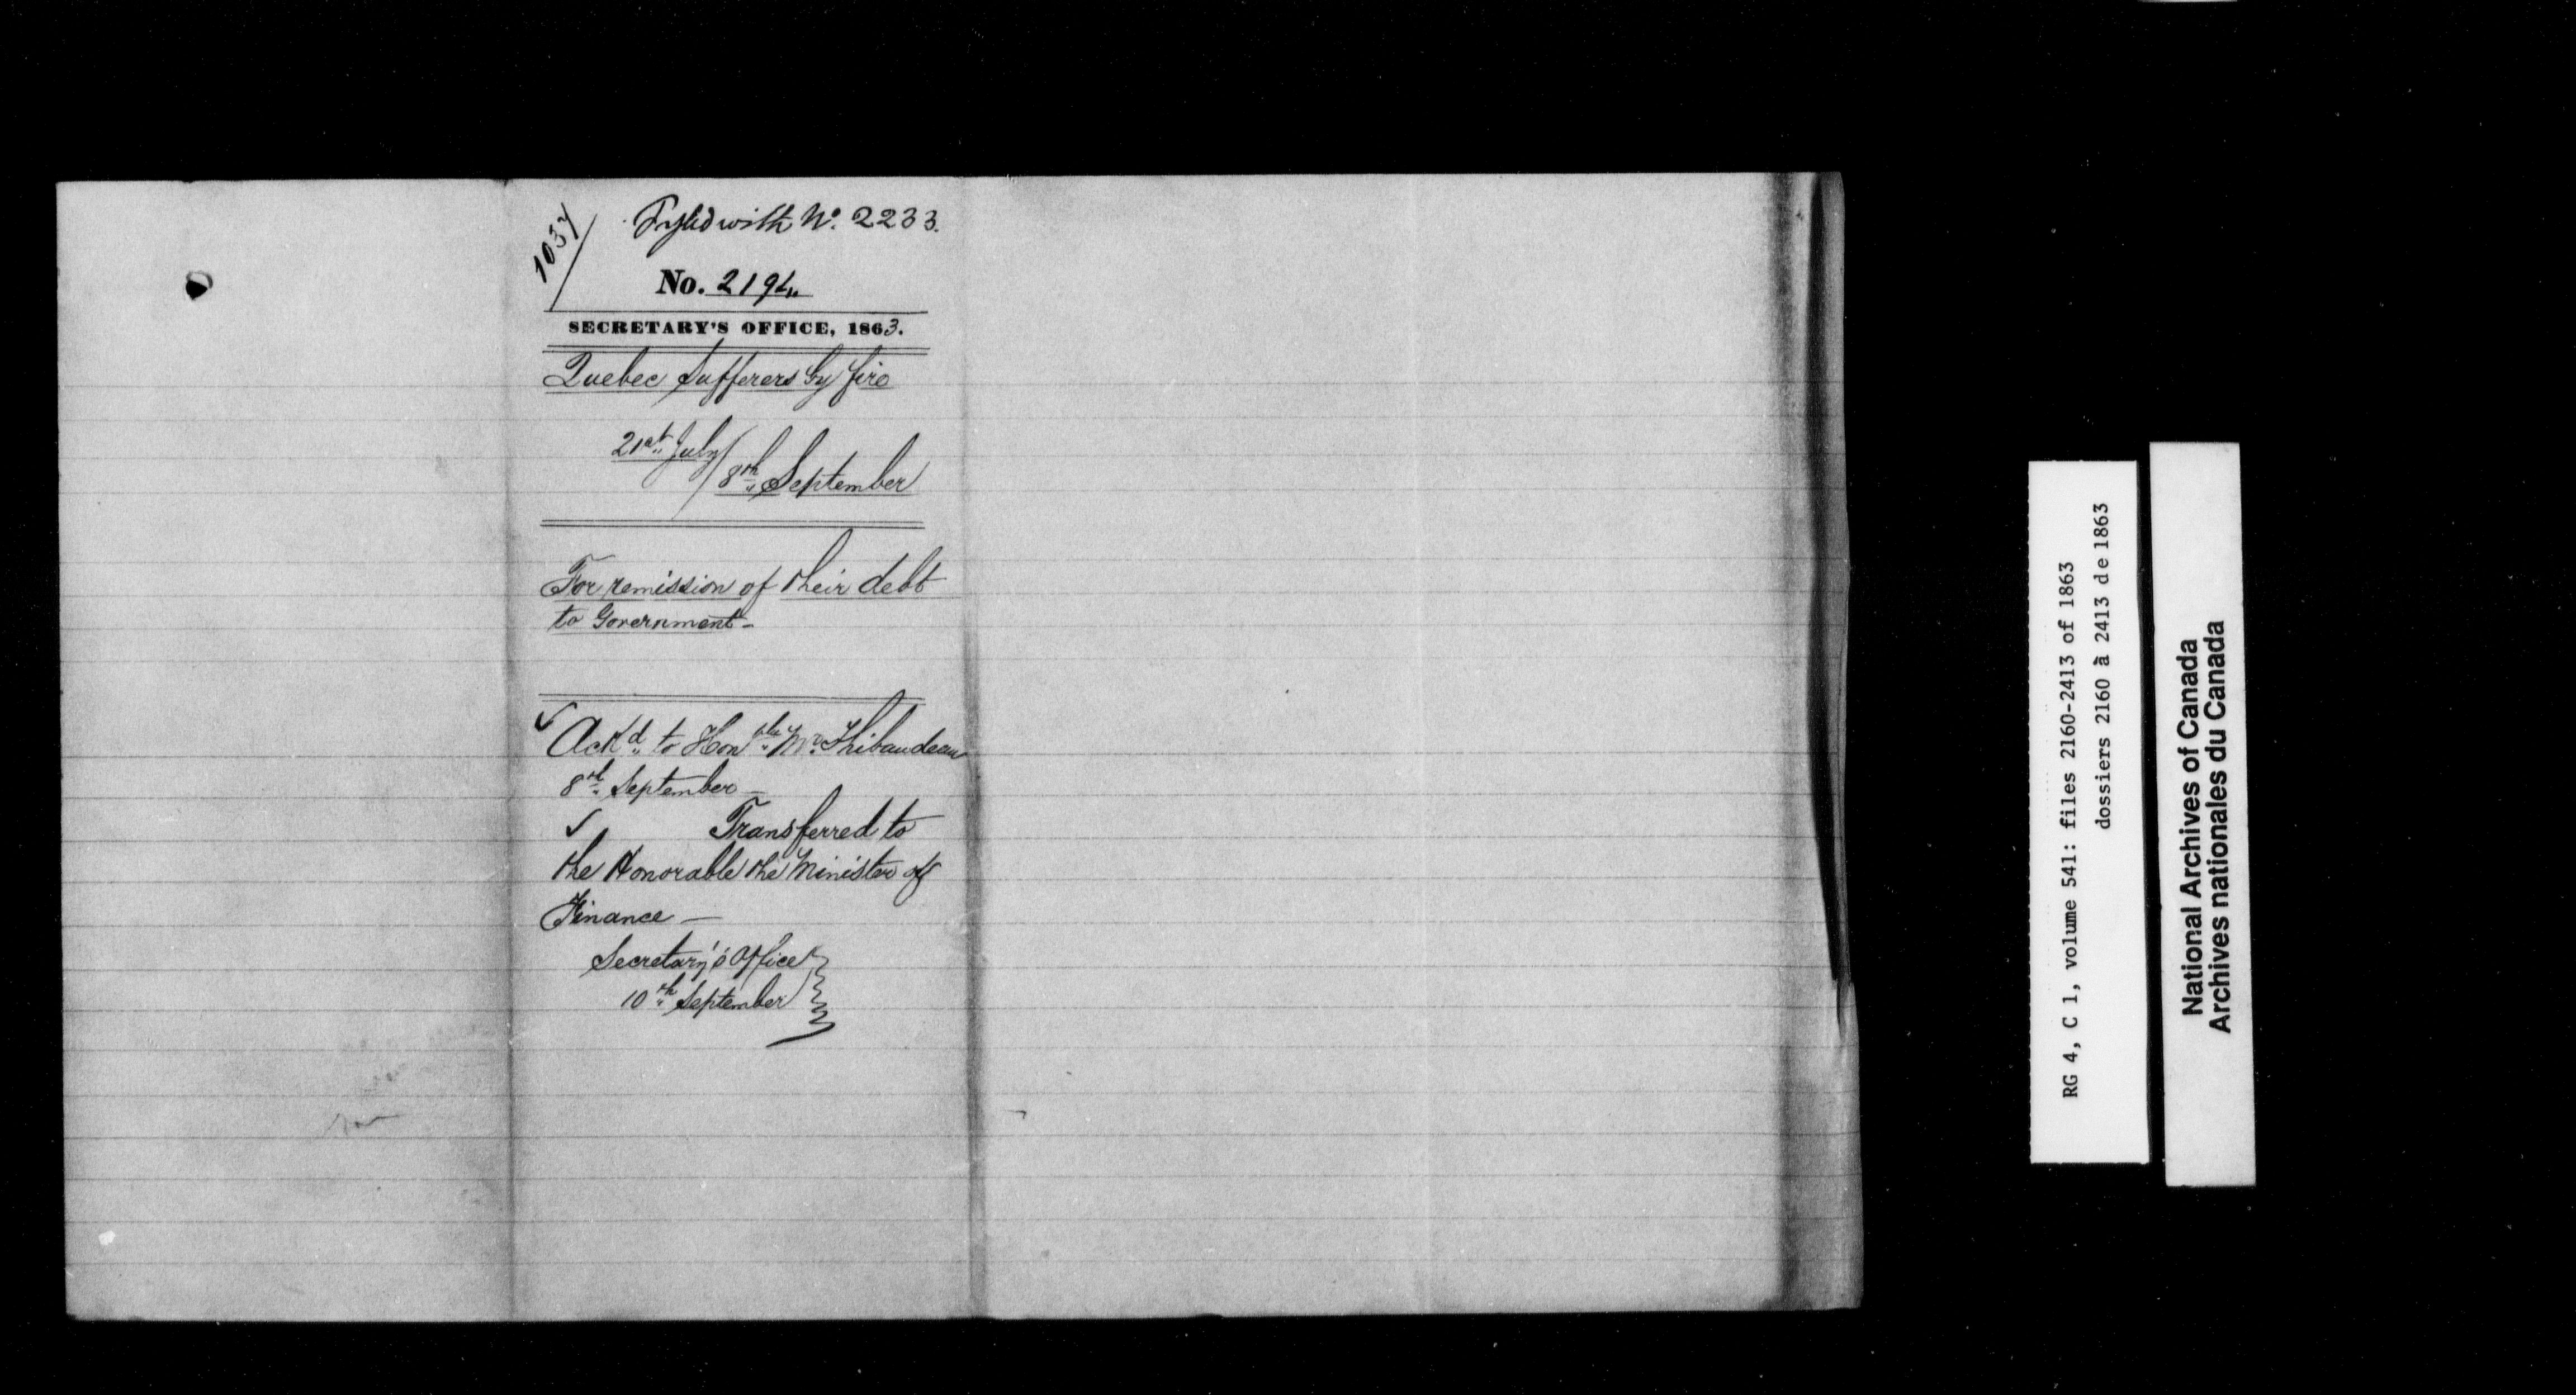 Fyled with No. 2233.
No. 2194
SECRETARY'S OFFICE, 1863.
Quebec Sufferers by fire
21st July /
8th September
For remission of their debt
to Government -
✓ Ackd. to Honble. Mr. Thibaudeau
8th September -
✓ Transferred to
the Honorable the Minister of
Finance -
Secretary's Office
10th September
RG 4, C 1, volume 541: files 2160-2413 of 1863
dossiers 2160 à 2413 de 1863
National Archives of Canada
Archives nationales du Canada